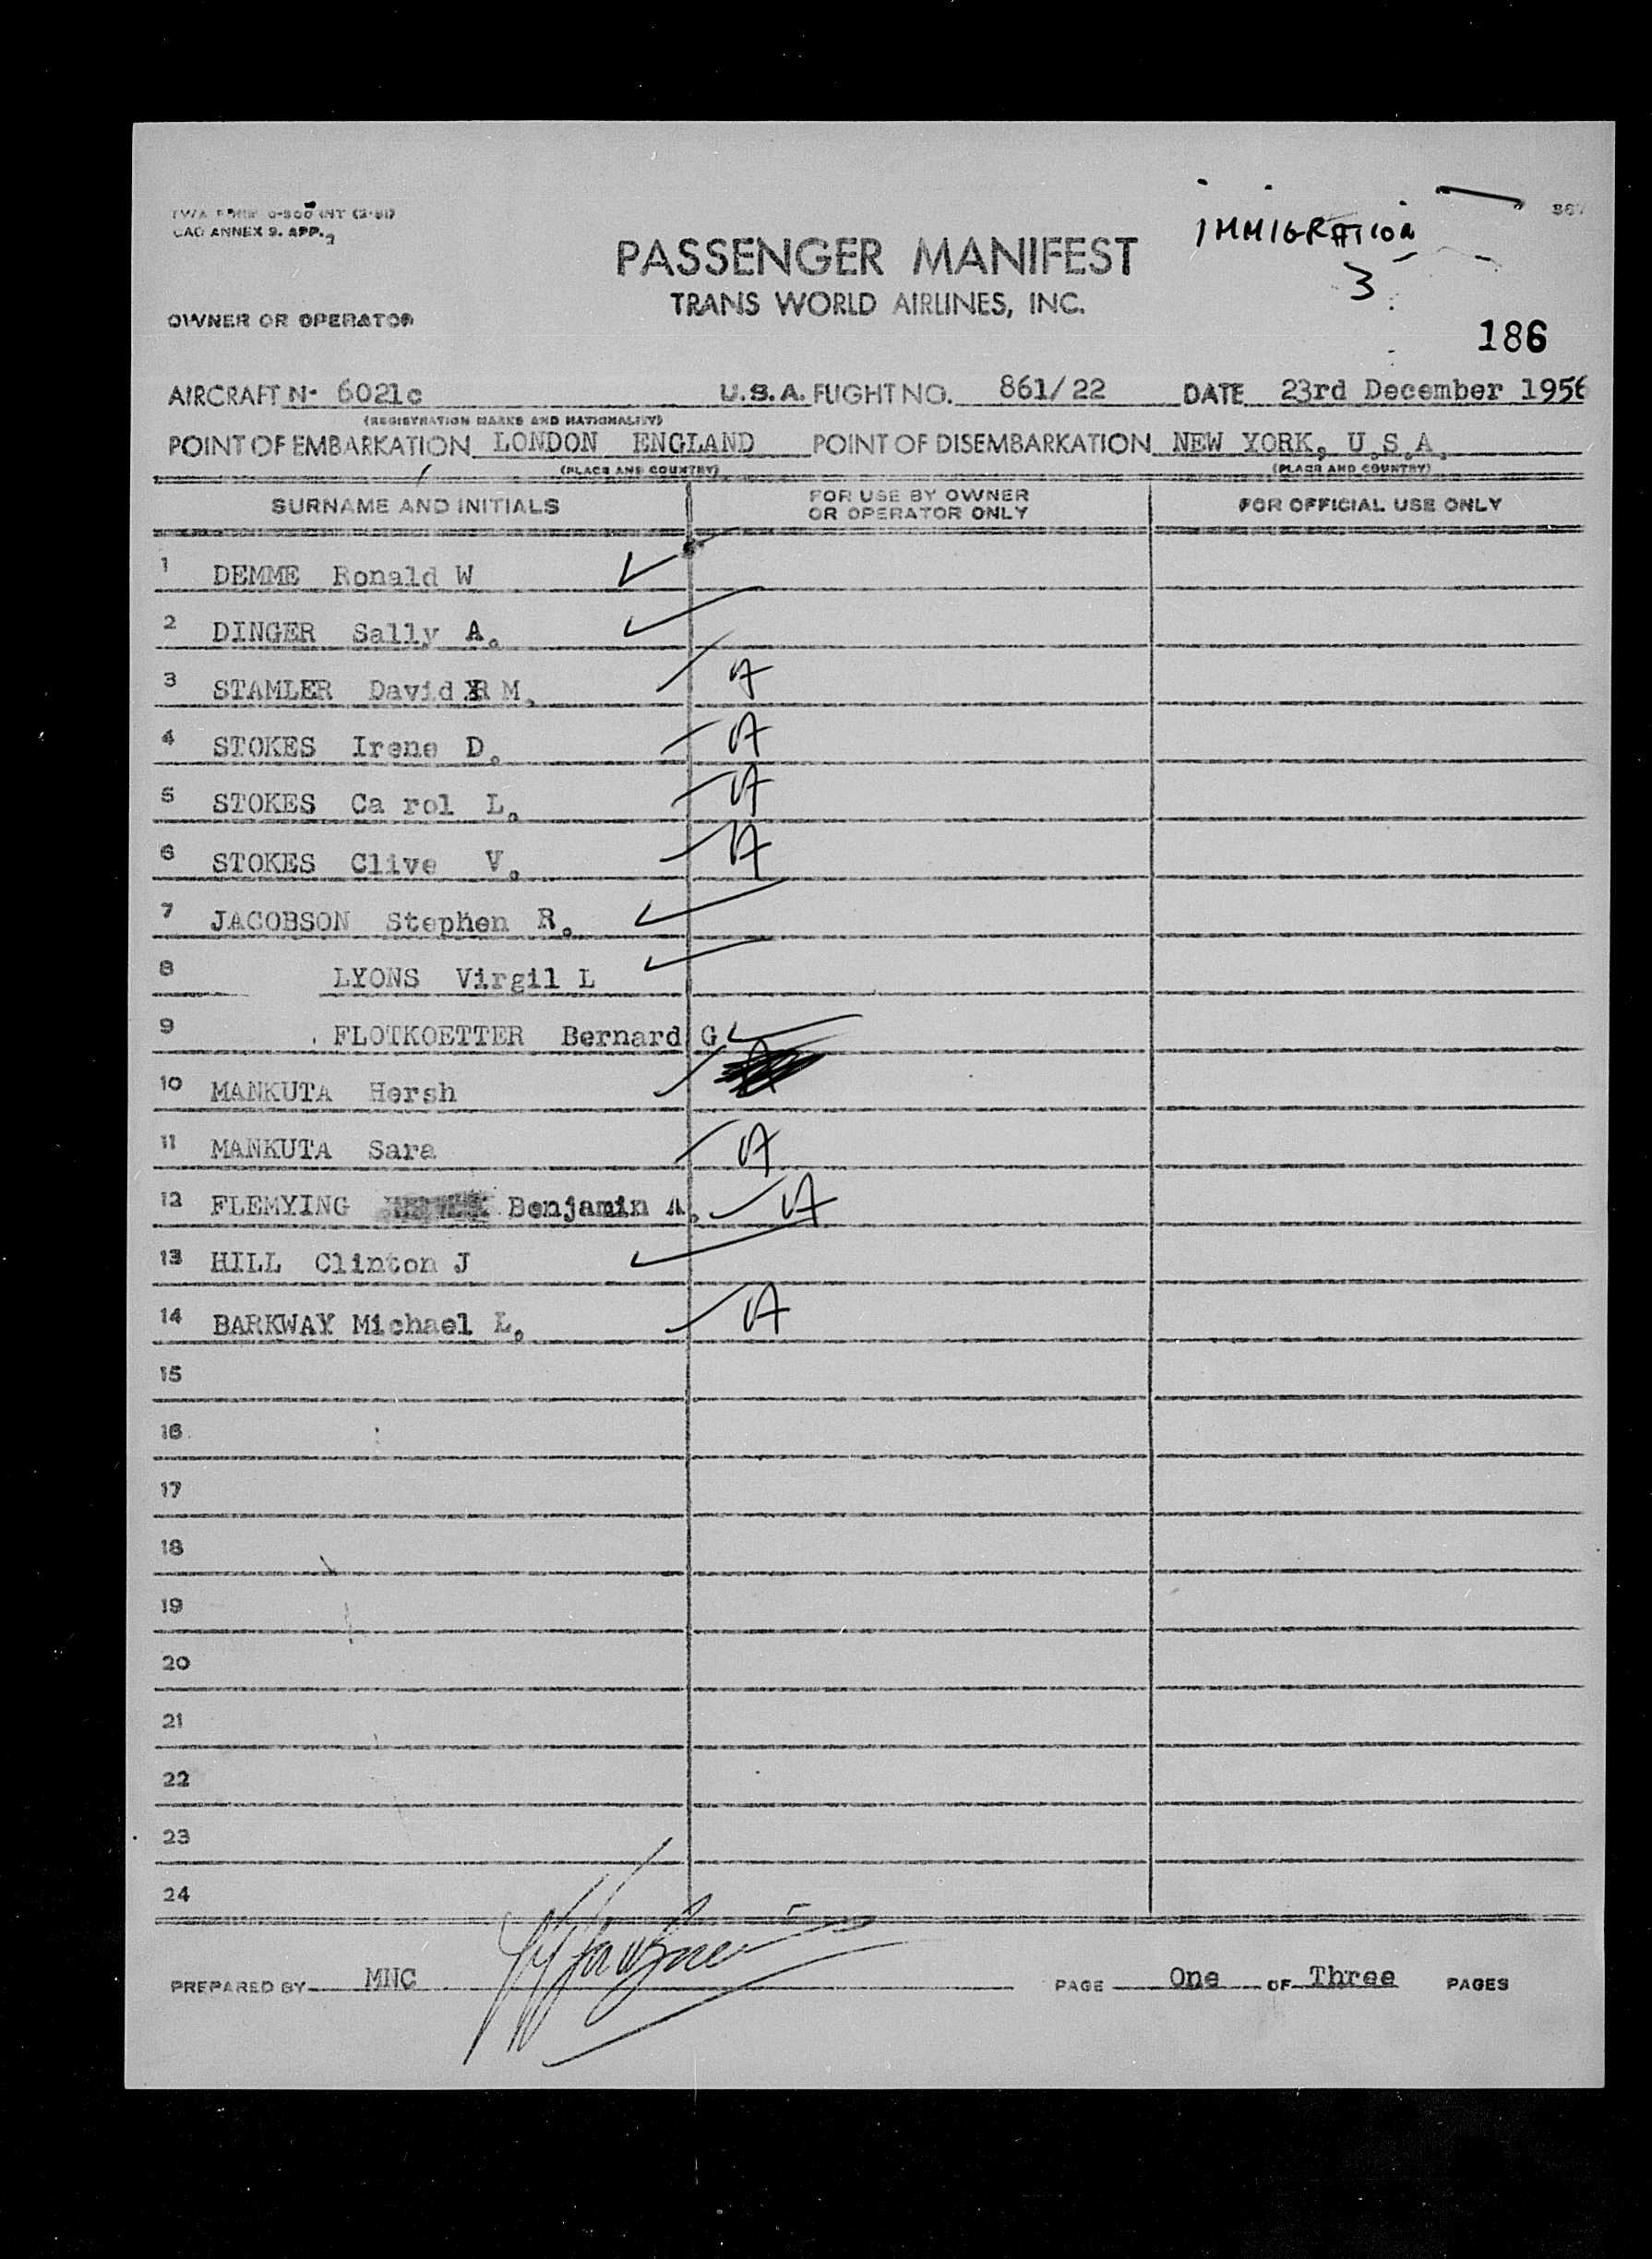 TWA FORM 0-500 INT (2-51)
CAO ANNEX 9. APP. 2
IMMIGRATION
3
367
PASSENGER MANIFEST
TRANS WORLD AIRLINES, INC.
OWNER OR OPERATOR
186
AIRCRAFT N- 6021c U.S.A. FLIGHT NO. 861/22 DATE 23rd December 1956
(REGISTRATION MARKS AND NATIONALITY)
POINT OF EMBARKATION LONDON ENGLAND POINT OF DISEMBARKATION NEW YORK, U.S.A.
(PLACE AND COUNTRY) (PLACE AND COUNTRY)
SURNAME AND INITIALS FOR USE BY OWNER OR OPERATOR ONLY FOR OFFICIAL USE ONLY
1 DEMME Ronald W
2 DINGER Sally A.
3 STAMLER David R M. A
4 STOKES Irene D. A
5 STOKES Ca rol L. A
6 STOKES Clive V. A
7 JACOBSON Stephen R.
8 LYONS Virgil L
9 FLOTKOETTER Bernard G
10 MANKUTA Hersh
11 MANKUTA Sara A
12 FLEMYING Benjamin A. A
13 HILL Clinton J
14 BARKWAY Michael L. A
15
16
17
18
19
20
21
22
23
24
PREPARED BY MNC PAGE One OF Three PAGES